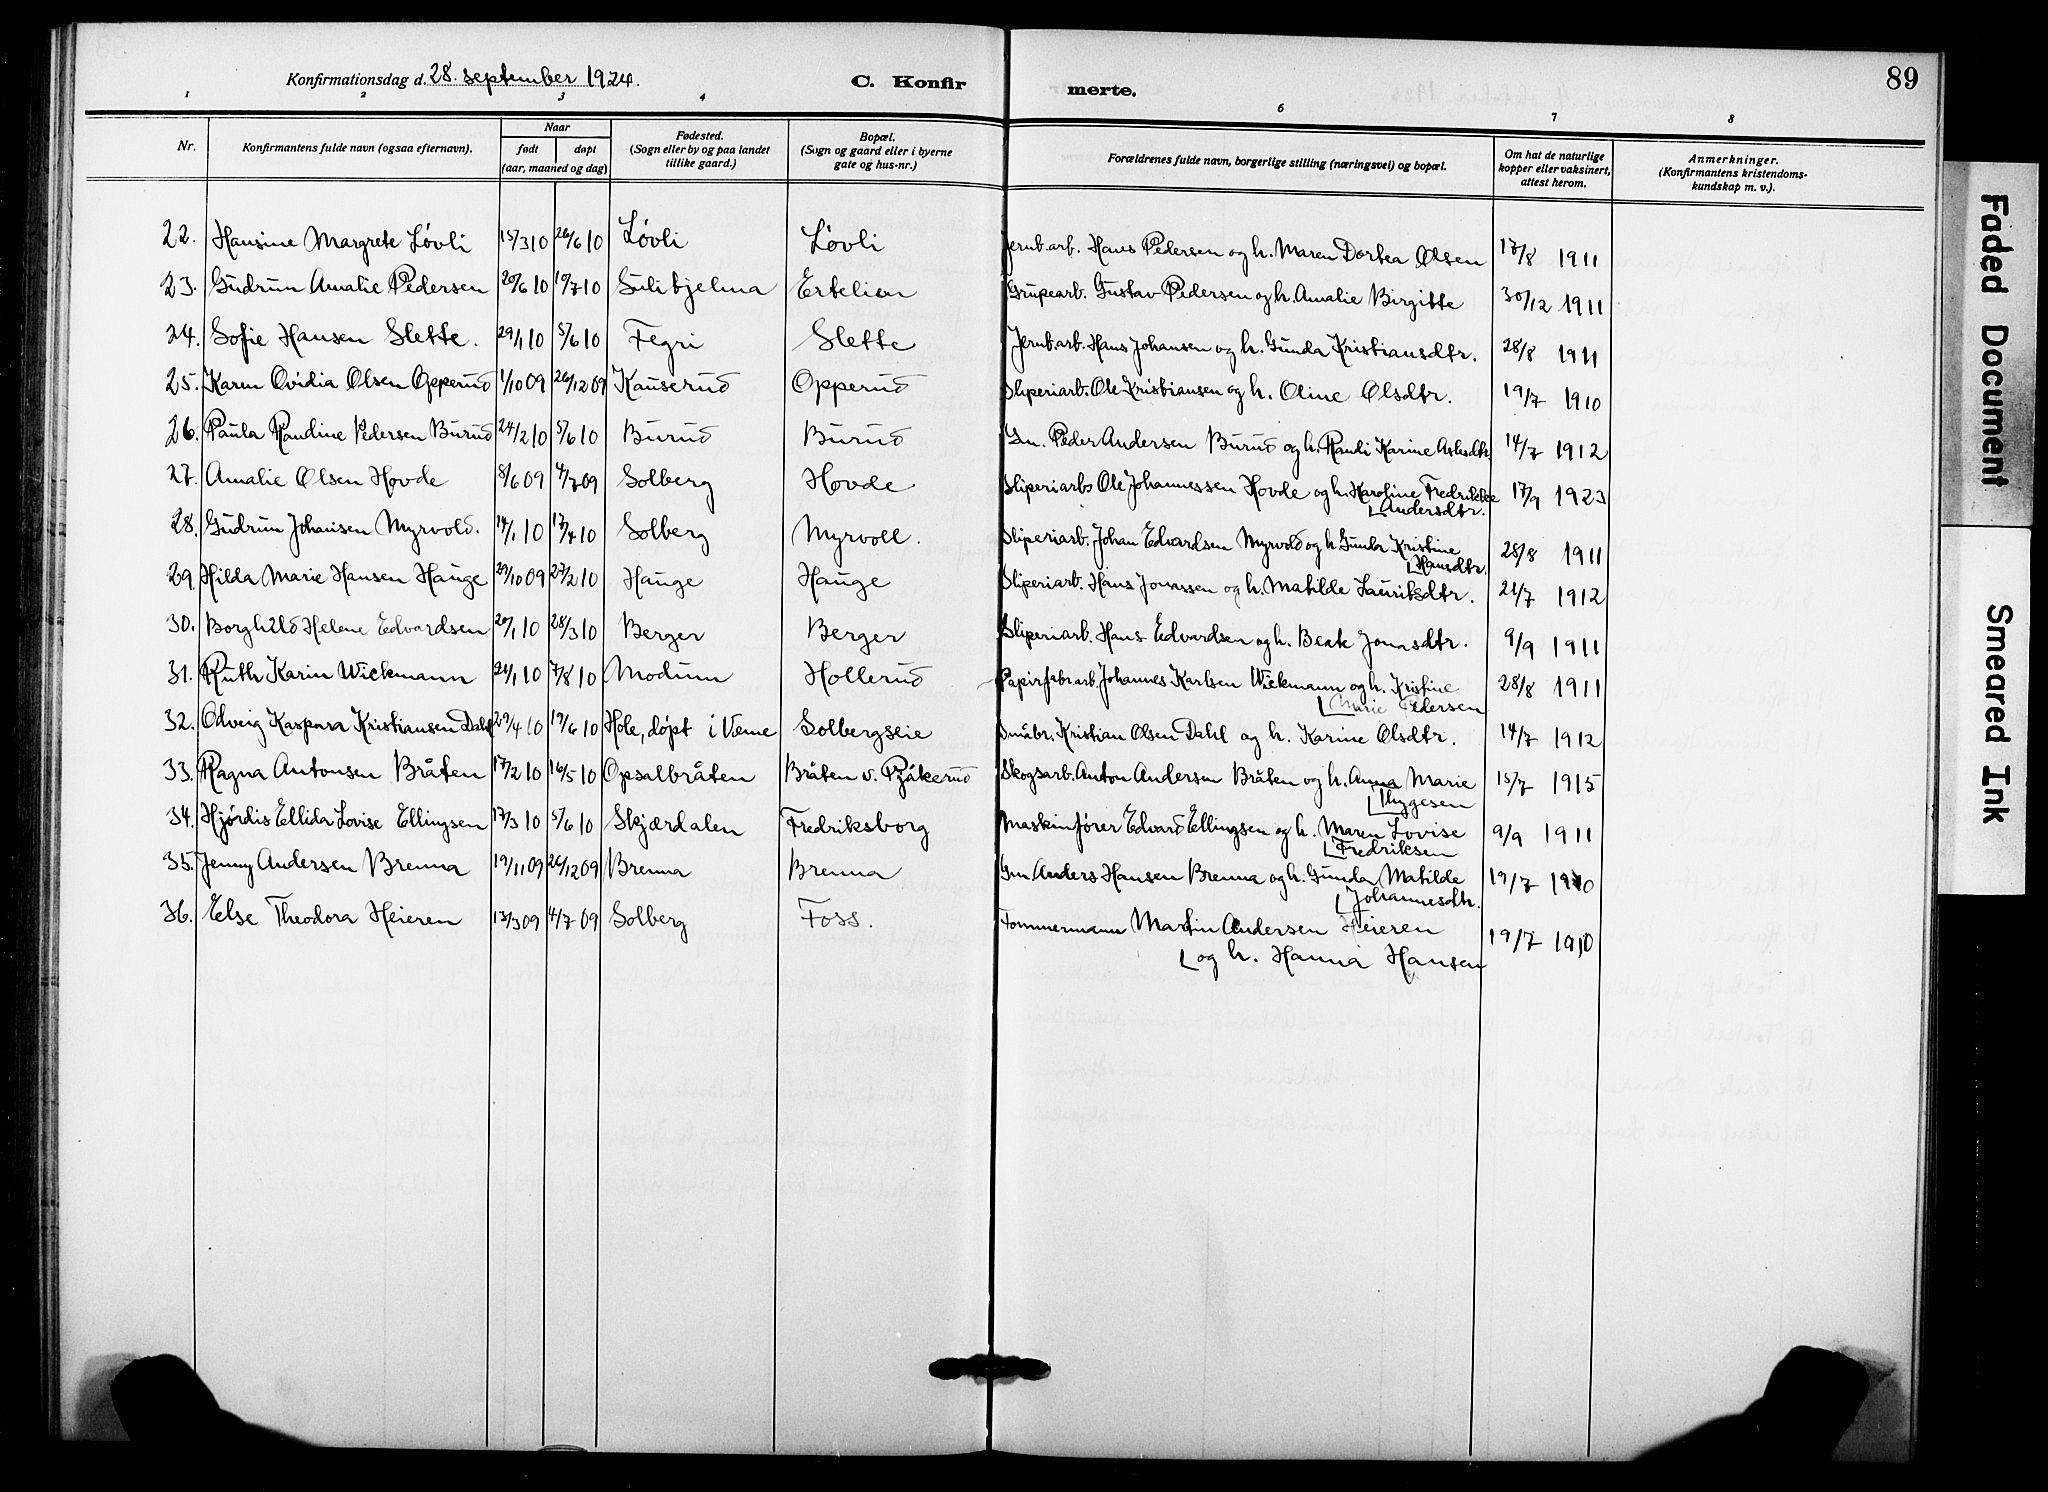 Konfirmationsdag d. 28. september 1924. C. Konfirmerte. 89
1 2 3 4 5 6 7 8
Nr. Konfirmantens fulde navn (ogsaa efternavn). Naar født døpt (aar, maaned og dag) Fødested. (Sogn eller by og paa landet tillike gaard.) Bopæl. (Sogn og gaard eller i byerne gate og hus-nr.) Forældrenes fulde navn, borgerlige stilling (næringsvei) og bopæl. Om hat de naturlige kopper eller vaksinert, attest herom. Anmerkninger. (Konfirmantens kristendoms-kundskap m. v.).
22. Hansine Margrete Løvli 15/3 10 26/6 10 Løvli Løvli Jernb.arb. Hans Pedersen og h. Maren Dortea Olsen 17/8 1911
23. Gudrun Amalie Pedersen 20/6 10 10/7 10 Sulitjelma Ertelien Grupearb. Gustav Pedersen og h. Amalie Birgitte 30/12 1911
24. Sofie Hansen Slette. 29/1 10 5/6 10 Fegri Slette Jernb.arb. Hans Johansen og h. Gunda Kristiansdtr. 28/8 1911
25. Karen Ovidia Olsen Opperud 1/10 09 26/12 09 Kauserud Opperud Sliperiarb. Ole Kristiansen og h. Oline Olsdtr. 19/7 1910
26. Paula Randine Pedersen Burud 24/2 10 5/6 10 Burud Burud Gm. Peder Andersen Burud og h. Randi Karine 14/7 1912
27. Amalie Olsen Hovde 8/6 09 4/7 09 Solberg Hovde Sliperiarb Ole Johannessen Hovde og h. Karoline Fredrikke 17/9 1923
Andersdtr.
28. Gudrun Johansen Myrvold. 14/1 10 17/4 10 Solberg Myrvoll. Sliperiarb. Johan Edvardsen Myrvold og h. Kristine 28/8 1911
Hansdtr.
29. Hilda Marie Hansen Hauge 29/10 09 27/2 10 Hauge Hauge Sliperiarb. Hans Jonassen og h. Matilde Lauritsdtr. 21/7 1912
30. Borghild Helene Edvardsen 20/1 10 28/3 10 Berger Berger Sliperiarb. Hans Edvardsen og h. Beate Jonasdtr. 9/9 1911
31. Ruth Karin Wickmann 24/1 10 7/8 10 Modum Hollerud Papirfabr.arb. Johannes Karlsen Wickmann og h. Kristine 28/8 1911
Marie Pedersen
32. Odveig Kaspara Kristiansen Dahl 29/4 10 19/6 10 Hole, døpt i Solbergseie Småbr. Kristian Olsen Dahl og h. Karine Olsdtr. 14/7 1912
33. Ragna Antonsen Bråten 17/2 10 16/5 10 Opsalbråten Bråten v. Pjåkerud Skogsarb. Anton Andersen Bråten og h. Anna Marie 15/7 1915
Thygesen
34. Hjørdis Ellida Lovise Ellingsen 17/3 10 5/6 10 Skjærdalen Fredriksborg Maskinfører Edvard Ellingsen og h. Maren Lovise 9/9 1911
Fredriksen
35. Jenny Andersen Brenna 19/11 09 26/12 09 Brenna Brenna Gm. Anders Hansen Brenna og h. Gunda Matilde 19/7 1910
Johannesdtr.
36. Else Theodora Heieren 13/3 09 4/7 09 Solberg Foss. Tømmermann Martin Andersen Heieren 19/7 1910
og h. Hanna Hansen
Faded Document
Smeared Ink